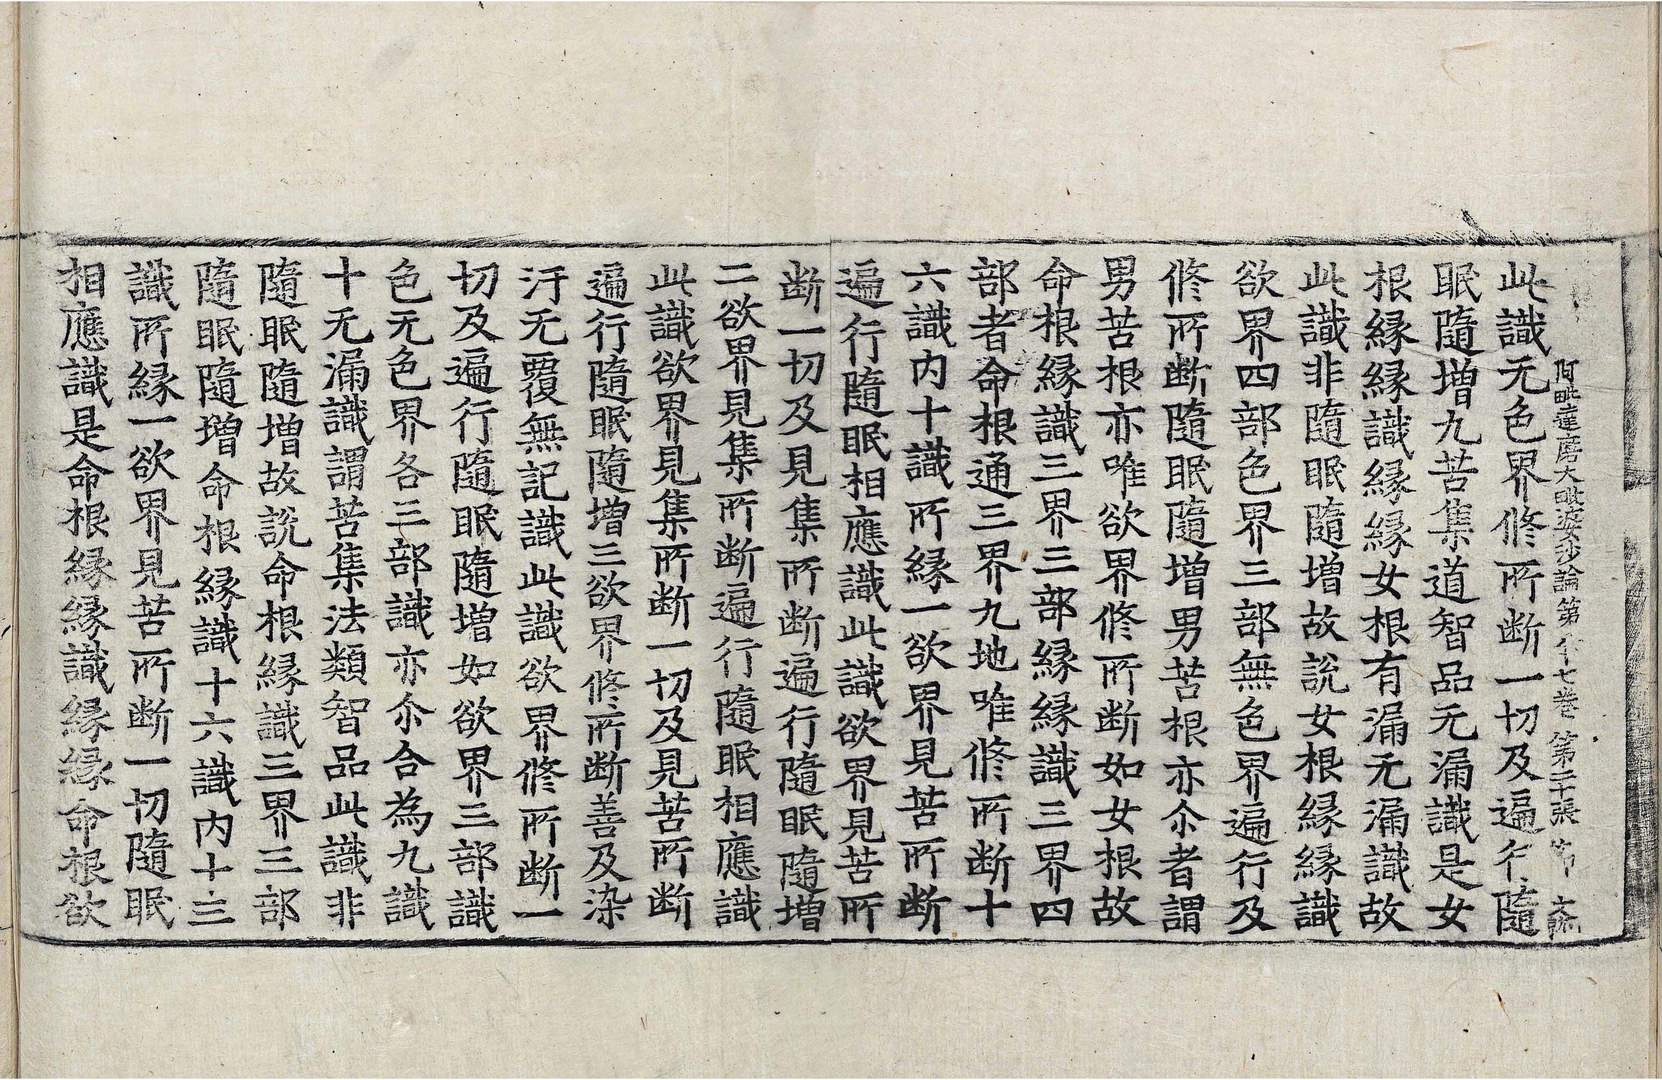 阿毗達磨大毗婆沙論第八十七卷 第二十張
此識无色界修所断一切及遍行隨
眠隨增九苦集道智品无漏識是女
根縁縁識縁縁女根有漏无漏識故
此識非隨眠隨增故說女根縁縁識
欲界四部色界三部無色界遍行及
修所断隨眠隨增男苦根亦尒者謂
男苦根亦唯欲界修所断如女根故
命根縁識三界三部縁縁識三界四
部者命根通三界九地唯修所断十
六識内十識所縁一欲界見苦所断
遍行隨眠相應識此識欲界見苦所
断一切及見集所断遍行隨眠隨增
二欲界見集所断遍行隨眠相應識
此識欲界見集所断一切及見苦所断
遍行隨眠隨增三欲界修所断善及染
汙无覆無記識此識欲界修所断一
切及遍行隨眠隨增如欲界三部識
色无色界各三部識亦尒合為九識
十无漏識謂苦集法類智品此識非
隨眠隨增故說命根縁識三界三部
隨眠隨增命根縁識十六識内十三
識所縁一欲界見苦所断一切隨眠
相應識是命根縁縁識縁縁命根欲